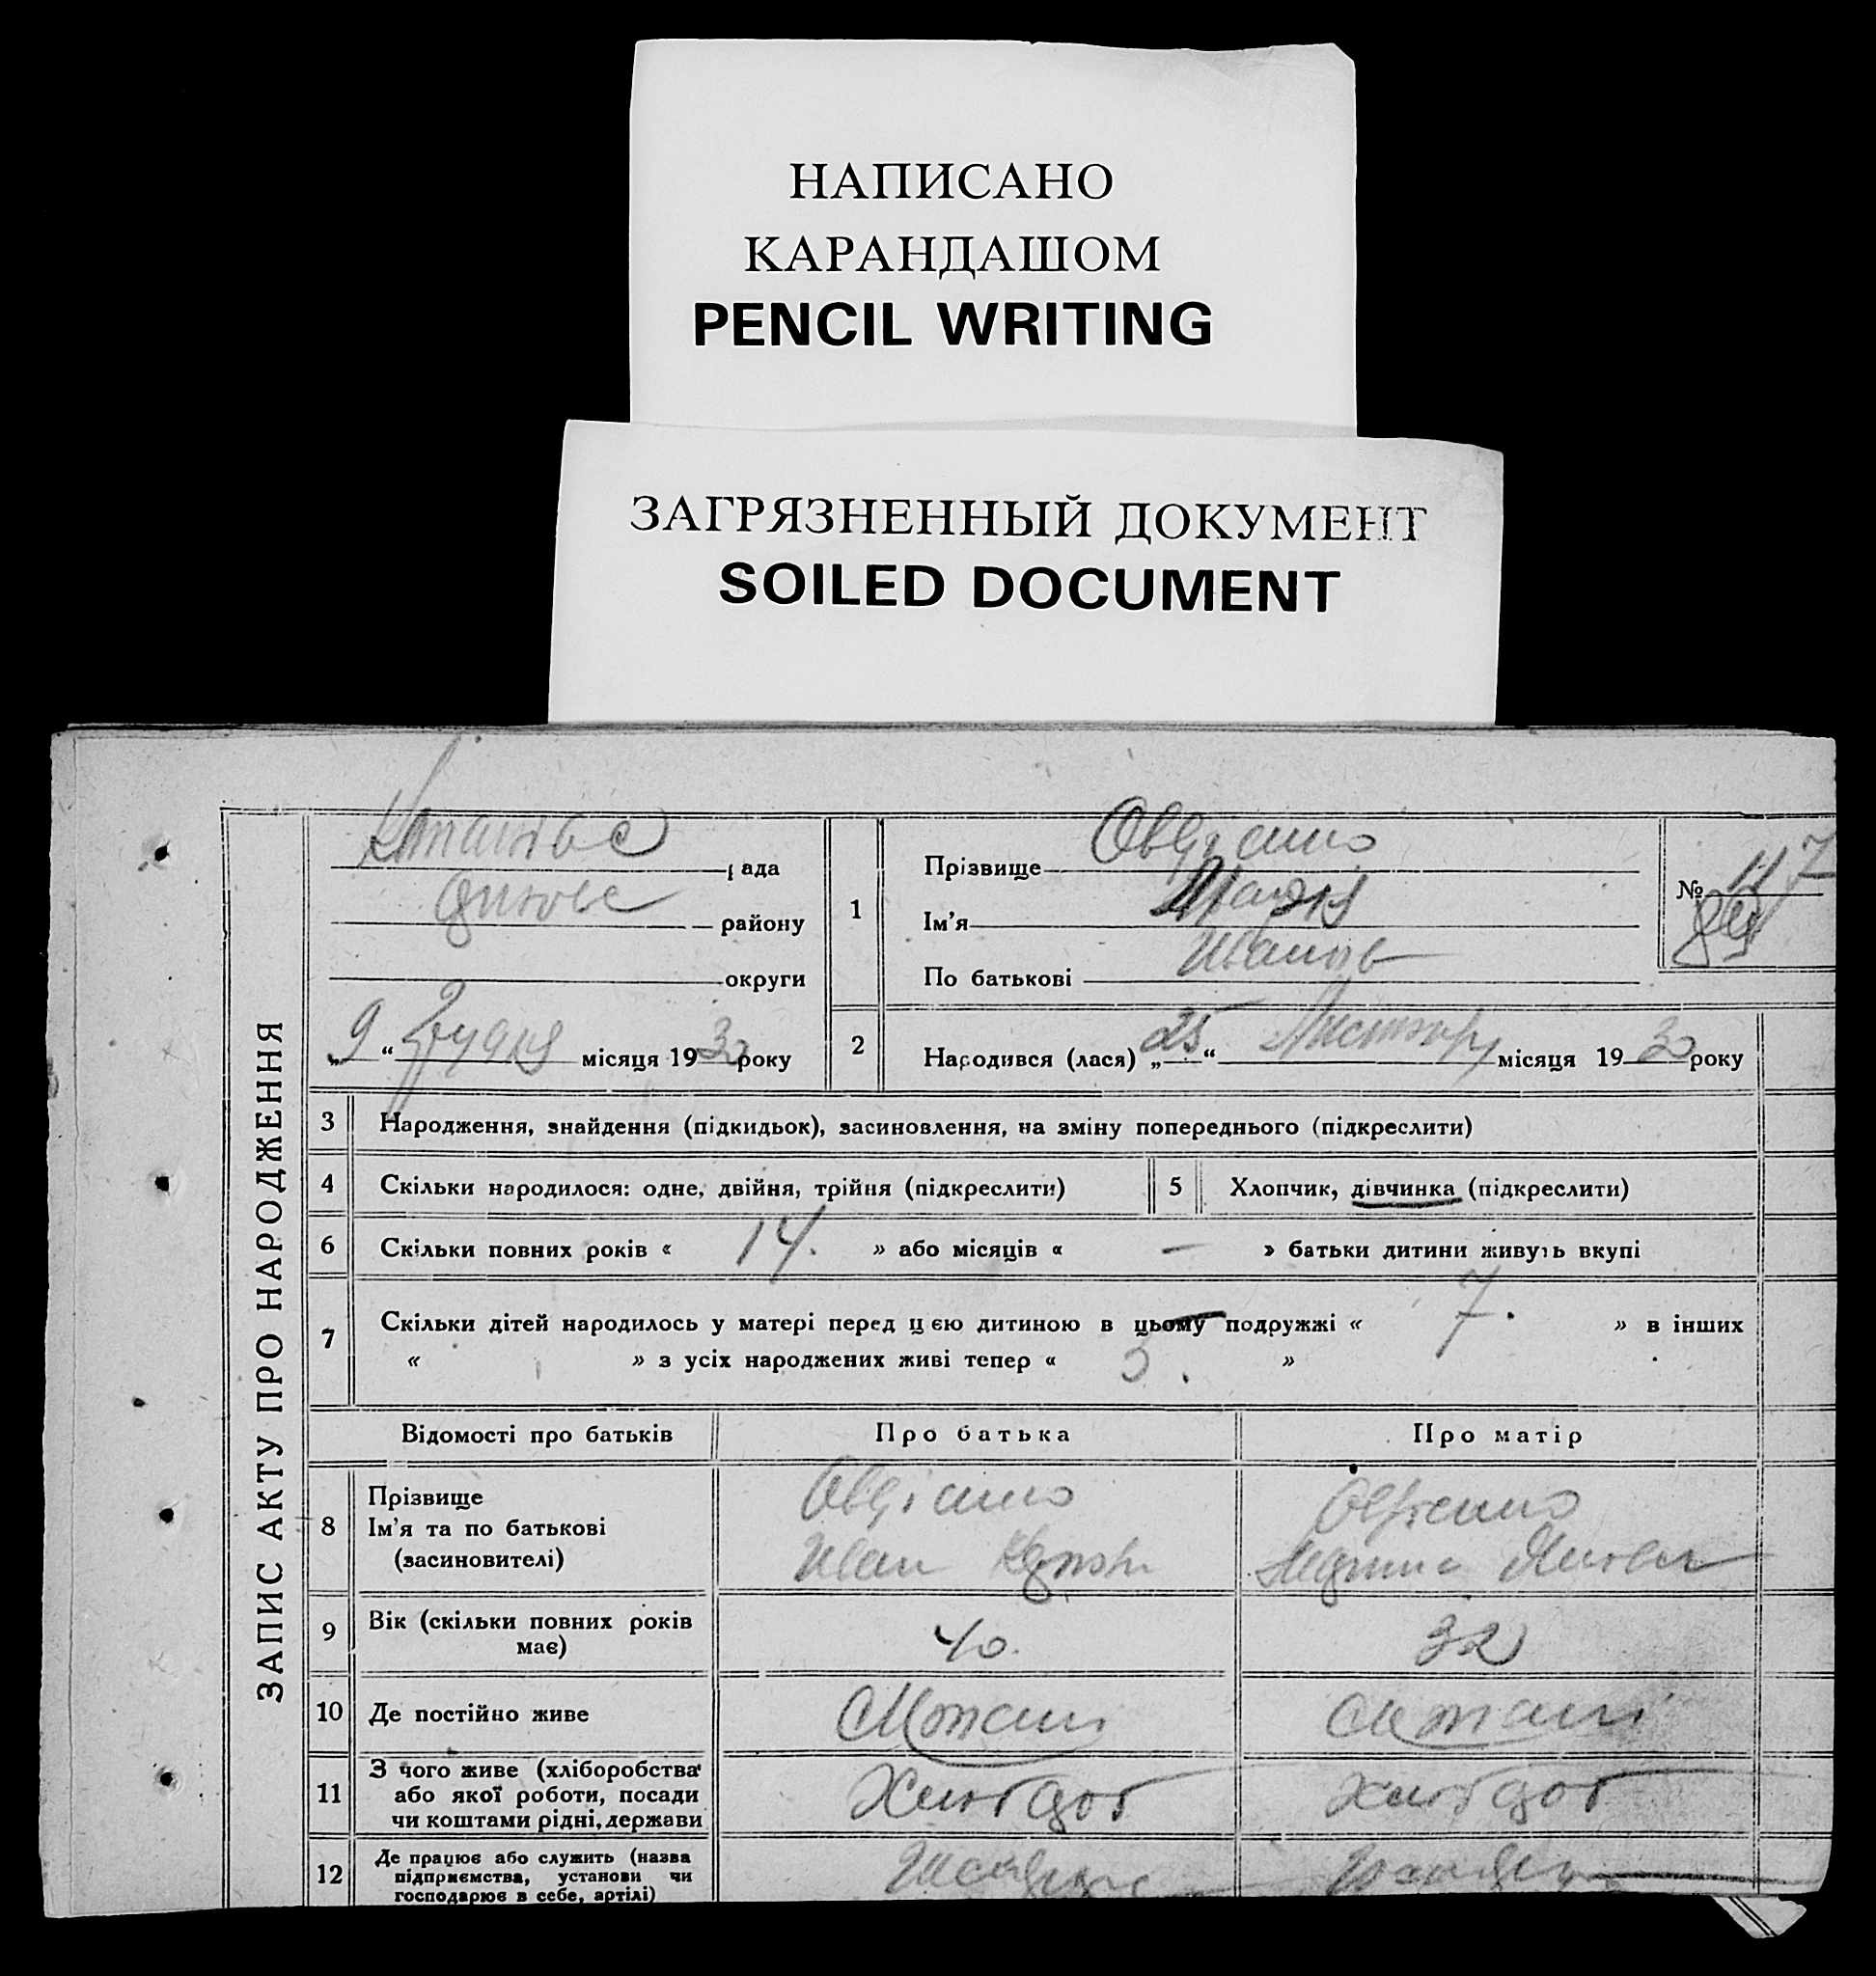 НАПИСАНО
КАРАНДАШОМ
PENCIL WRITING
ЗАГРЯЗНЕННЫЙ ДОКУМЕНТ
SOILED DOCUMENT
ЗАПИС АКТУ ПРО НАРОДЖЕННЯ
рада
району
округи
„9“ Грудня місяця 1930 року
1
Прізвище Овдієнко
Ім’я Марія
По батькові Иванов
№ 117
2
Народився (лася) „25“ Листопару місяця 1930 року
3 Народження, знайдення (підкидьок), засиновлення, на зміну попереднього (підкреслити)
4 Скільки народилося: одне, двійня, трійня (підкреслити)
5 Хлопчик, дівчинка (підкреслити)
6 Скільки повних років « 14. » або місяців « — » батьки дитини живуть вкупі
7 Скільки дітей народилось у матері перед цією дитиною в цьому подружжі « 7. » в інших
« » з усіх народжених живі тепер « 5. »
Відомості про батьків Про батька Про матір
8 Прізвище
Ім’я та по батькові
(засиновителі)
Овдієнко
Иван
Овдієнко
9 Вік (скільки повних років
має)
40. 32
10 Де постійно живе
11 З чого живе (хліборобства
або якої роботи, посади
чи коштами рідні, держави
Хлібороб Хлібороб
12 Де працює або служить (назва
підприємства, установи чи
господарює в себе, артілі)